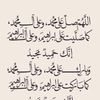 اللهم صل على محمد وعلى آل محمد
كما صليت على إبراهيم وعلى آل إبراهيم
إنك حميد مجيد
وبارك على محمد وعلى آل محمد
كما باركت على إبراهيم وعلى آل إبراهيم